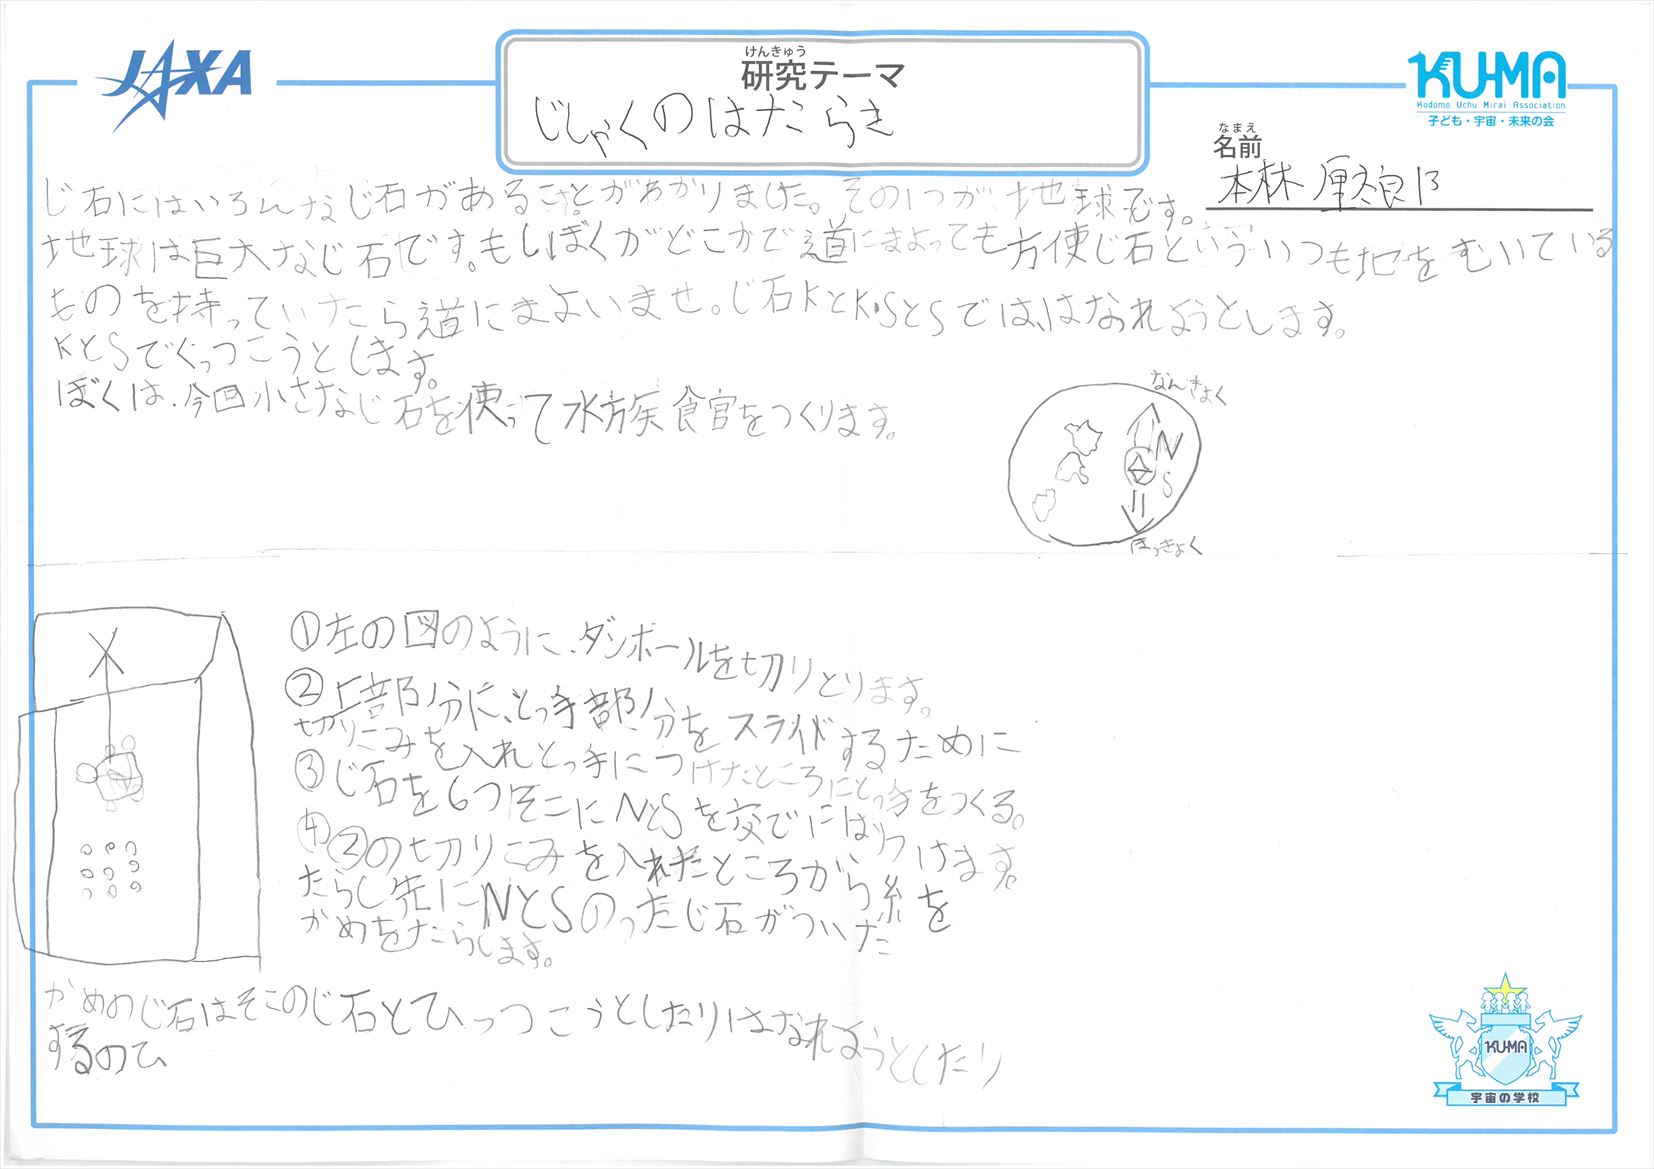 JAXA
けんきゅう
研究テーマ
じしゃくのはたらき
KU-MA
Kodomo Uchu Mirai Association
子ども・宇宙・未来の会
なまえ
名前
本林
じ石にはいろんなじ石があることがわかりました。その1つが地球です。
地球は巨大なじ石です。もしぼくがどこかで道にまよっても方使じ石といういつも地をむいている
ものを持っていたら道にまよいませ。じ石KとK・SとSでは、はなれようとします。
KとSでくっつこうとします。
ぼくは、今回小さなじ石を使って水族食官をつくります。
なんきょく
N
S
ほっきょく
①左の図のように、ダンボールを切りとります。
②上部分に、とっ手部分をスライドするために
切りこみを入れとっ手につけたところにとっ手をつくる。
③じ石を6つそこにNとSを交でにはりつけます。
④②の切りこみを入れたところから糸を
たらし先にNとSのったじ石がついた
かめをたらします。
かめのじ石はそこのじ石とひっつこうとしたりはなれようとしたり
するのひ
KU-MA
宇宙の学校